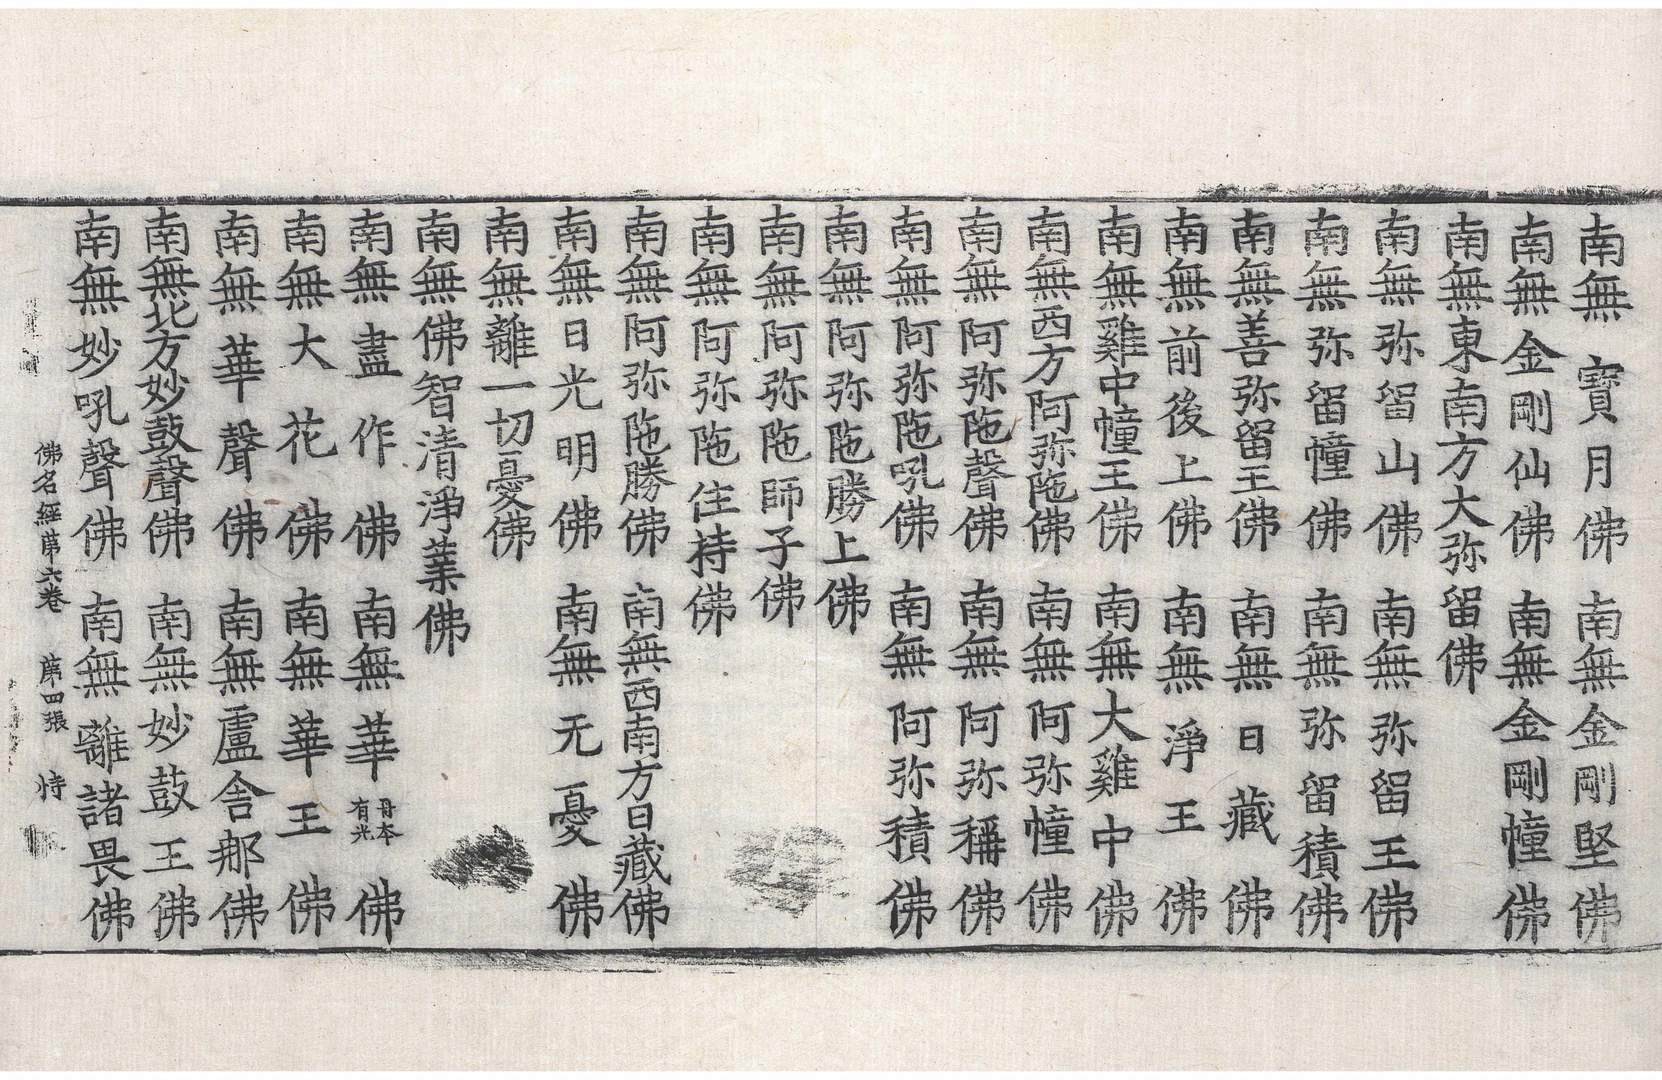 南無寶月佛　南無金剛堅佛
南無金剛仙佛　南無金剛幢佛
南無東南方大弥留佛
南無弥留山佛　南無弥留王佛
南無弥留幢佛　南無弥留積佛
南無善弥留王佛　南無日藏佛
南無前後上佛　南無淨王佛
南無雞中幢王佛　南無大雞中佛
南無西方阿弥陁佛　南無阿弥幢佛
南無阿弥陁聲佛　南無阿弥稱佛
南無阿弥陁吼佛　南無阿弥積佛
南無阿弥陁勝上佛
南無阿弥陁師子佛
南無阿弥陁住持佛
南無阿弥陁勝佛　南無西南方日藏佛
南無日光明佛　南無无憂佛
南無離一切憂佛
南無佛智清淨業佛
南無盡作佛　南無華丹本有光佛
南無大花佛　南無華王佛
南無華聲佛　南無盧舍那佛
南無北方妙鼓聲佛　南無妙鼓王佛
南無妙吼聲佛　南無離諸畏佛
佛名經第六卷　第四張　恃